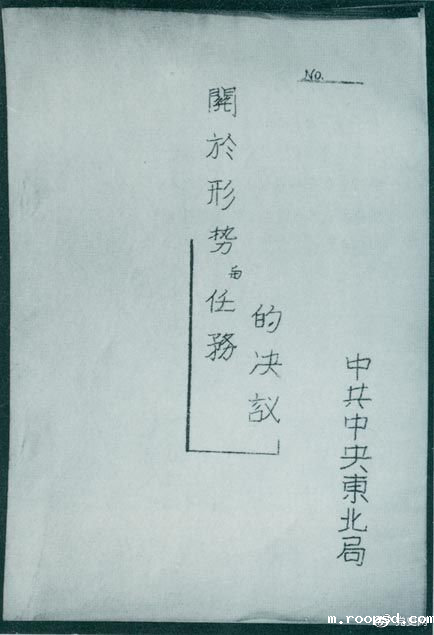 No.
關於形势与任務
的决议
中共中央東北局
m.roopsd.com